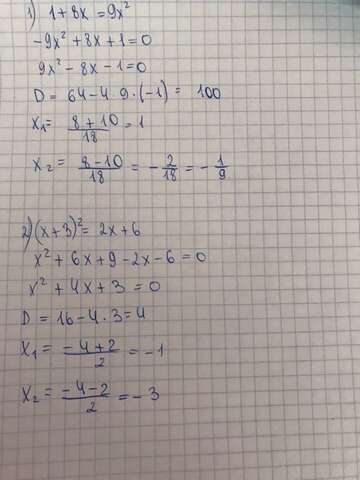 1) 1 + 8x = 9x²
-9x² + 8x + 1 = 0
9x² - 8x - 1 = 0
D = 64 - 4 · 9 · (-1) = 100
x₁ = (8 + 10)/18 = 1
x₂ = (8 - 10)/18 = -2/18 = -1/9
2) (x + 3)² = 2x + 6
x² + 6x + 9 - 2x - 6 = 0
x² + 4x + 3 = 0
D = 16 - 4 · 3 = 4
x₁ = (-4 + 2)/2 = -1
x₂ = (-4 - 2)/2 = -3